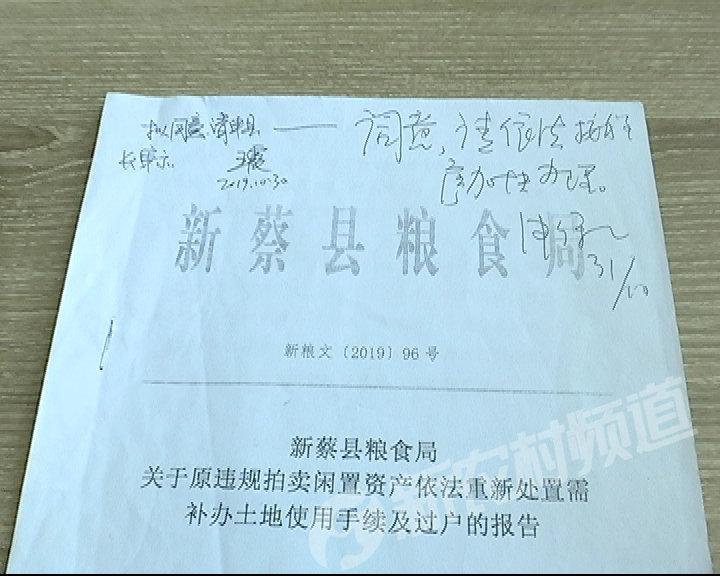 拟同意,请县
长审示
2019.10.30
同意,请依法按程
序加快办理。
31/10
新蔡县粮食局
新粮文〔2019〕96号
新蔡县粮食局
关于原违规拍卖闲置资产依法重新处置需
补办土地使用手续及过户的报告
新农村频道